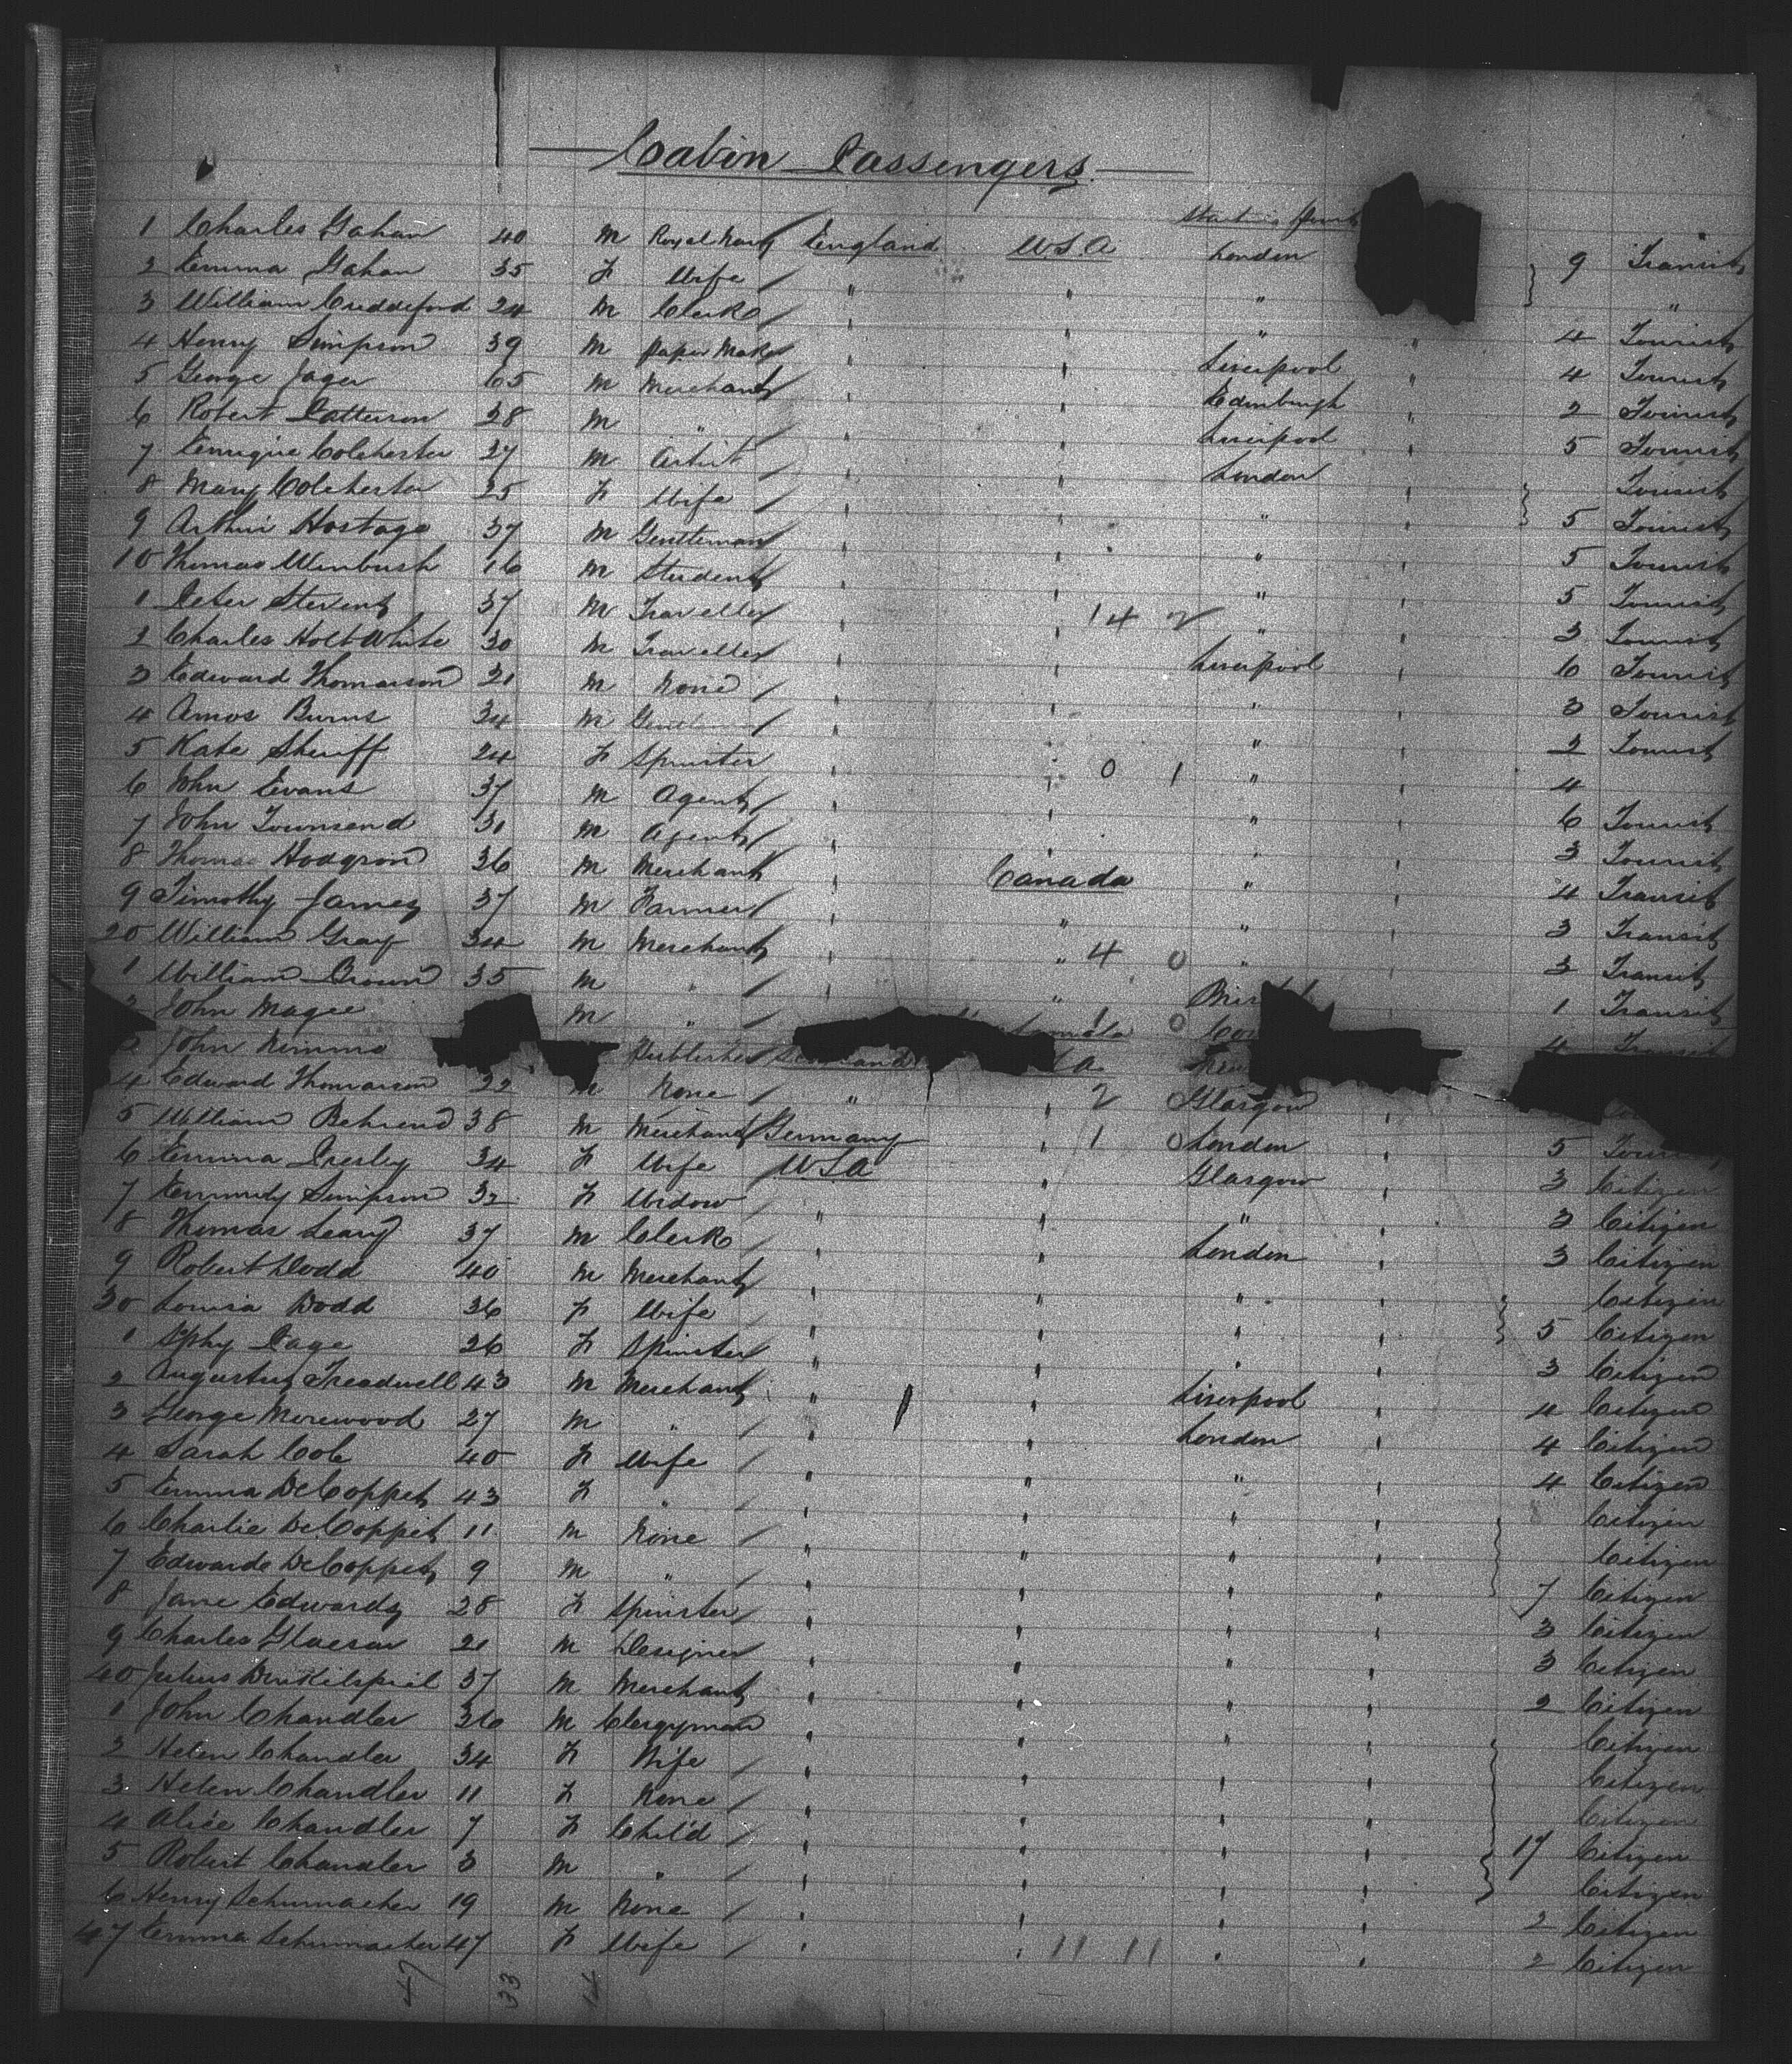 Cabin Passengers.
1 Charles Gahan 40 M Royal Navy England U.S.A London 9 Transit
2 Emma Gahan 35 F Wife " " " "
3 William Cuddeford 24 M Clerk " " " 4 Tourist
4 Henry Simpson 39 M Paper Maker " " Liverpool " 4 Tourist
5 George Jager 65 M Merchant " " Edinburgh " 2 Tourist
6 Robert Patterson 28 M " " " Liverpool " 5 Tourist
7 Colchester 27 M Artist " " London " Tourist
8 Mary Colchester 25 F Wife " " " " 5 Tourist
9 Arthur Hostage 37 M Gentleman " " " " 5 Tourist
10 Thomas Wimbush 16 M Student " " " " 5 Tourist
1 Peter Stevens 37 M Traveller " " 14 2 " " 3 Tourist
2 Charles Holt White 30 M Traveller " " Liverpool " 6 Tourist
3 Edward Thomason 21 M None " " " " 3 Tourist
4 Amos Burns 34 M Gentleman " " " " 2 Tourist
5 Kate Sheriff 24 F Spinster " " 0 1 " " 4
6 John Evans 37 M Agent " " " " 6 Tourist
7 John Townsend 31 M Agent " " " " 3 Tourist
8 Thomas Hodgson 36 M Merchant " Canada " " 4 Transit
9 Timothy James 37 M Farmer " " " " 3 Transit
20 William Gray 34 M Merchant " " 4 0 " " 3 Transit
1 William Brown 35 M " " " 1 Transit
2 John Magee M " 1 0 4 Transit
3 John Nimmo Publisher
4 Edward Thomason 22 M None " " 2 Glasgow "
5 William Behrend 38 M Merchant Germany " 1 0 London " 5
6 Emma Presley 34 F Wife U.S.A Glasgow " 3 Citizen
7 Simpson 32 F Widow " " " " 3 Citizen
8 Thomas Leary 37 M Clerk " London " 3 Citizen
9 Robert Dodd 40 M Merchant " " " " Citizen
30 Louisa Dodd 36 F Wife " " " " 5 Citizen
1 Page 26 F Spinster " " " " 3 Citizen
2 Augustus Treadwell 43 M Merchant " " Liverpool " 4 Citizen
3 George Merewood 27 M " " " London " 4 Citizen
4 Sarah Cole 40 F Wife " " " " 4 Citizen
5 Emma DeCoppet 43 F " " " " " Citizen
6 Charlie DeCoppet 11 M None " " " " Citizen
7 Edwards DeCoppet 9 M " " " " " 7 Citizen
8 Jane Edwards 28 F Spinster " " " " 3 Citizen
9 Charles Glaeson 21 M Designer " " " " 3 Citizen
40 Julius Dinkelspiel 37 M Merchant " " " " 2 Citizen
1 John Chandler 36 M Clergyman " " " " Citizen
2 Helen Chandler 34 F Wife " " " " Citizen
3 Helen Chandler 11 F None " " " " Citizen
4 Alice Chandler 7 F Child " " " " 17 Citizen
5 Robert Chandler 3 M " " " " " Citizen
6 Henry Schumacher 19 M None " " " " 2 Citizen
47 Emma Schumacher 47 F Wife " " 11 11 " " 2 Citizen
47 33 14